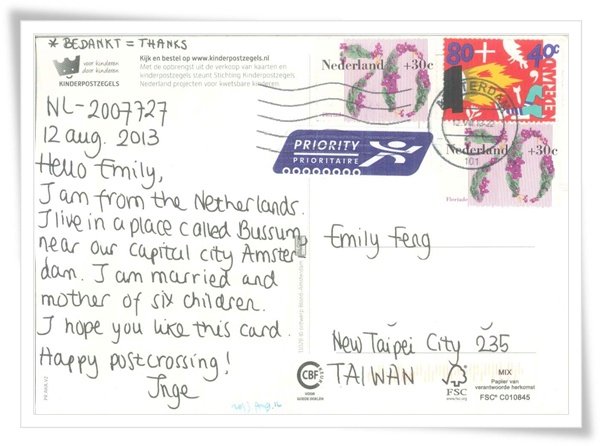 * BEDANKT = THANKS
voor kinderen
door kinderen
KINDERPOSTZEGELS
Kijk en bestel op www.kinderpostzegels.nl
Met de opbrengst uit de verkoop van kaarten en
kinderpostzegels steunt Stichting Kinderpostzegels
Nederland projecten voor kwetsbare kinderen.
NL-2007727
12 aug. 2013
Hello Emily,
I am from the Netherlands.
I live in a place called Bussum
near our capital city Amster
dam. I am married and
mother of six children.
I hope you like this card.
Happy postcrossing!
Inge
Nederland +30c
80+ 40c
NEDERLAND
AMSTERDAM
101
PRIORITY
PRIORITAIRE
Nederland +30c
Floriade
Emily Feng
New Taipei City 235
TAIWAN
CBF
VOOR
GOEDE DOELEN
FSC
www.fsc.org
MIX
Papier van
verantwoorde herkomst
FSC® C010845